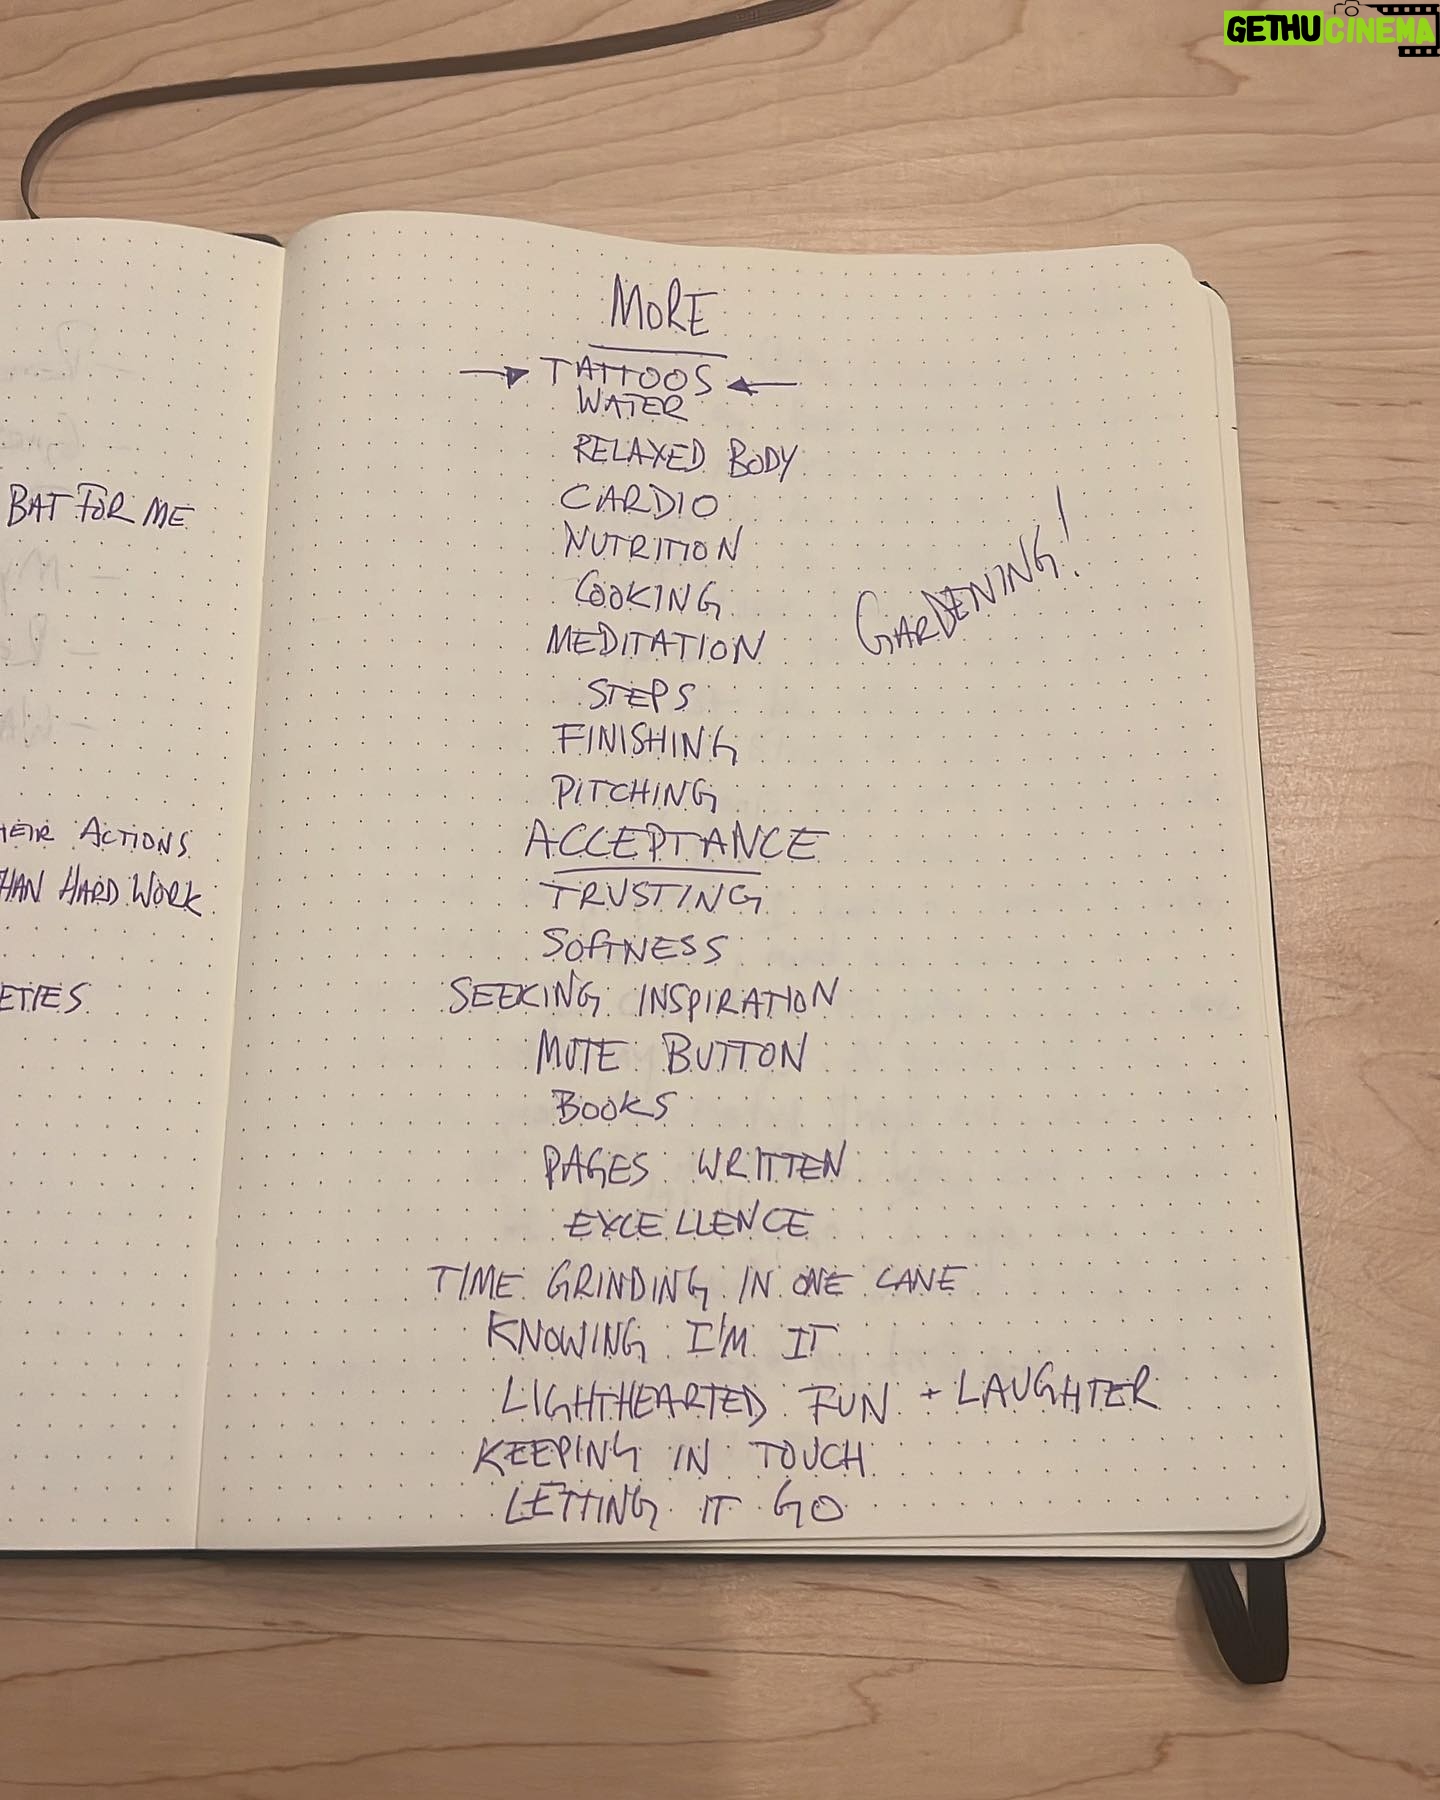 GETHUCINEMA
BAT FOR ME
HEIR ACTIONS
HAN HARD WORK
ETIES
MORE
TATTOOS
WATER
RELAXED BODY
CARDIO
NUTRITION
COOKING
MEDITATION
GARDENING!
STEPS
FINISHING
PITCHING
ACCEPTANCE
TRUSTING
SOFTNESS
SEEKING INSPIRATION
MUTE BUTTON
BOOKS
PAGES WRITTEN
EXCELLENCE
TIME GRINDING IN ONE LANE
KNOWING I'M IT
LIGHTHEARTED FUN + LAUGHTER
KEEPING IN TOUCH
LETTING IT GO